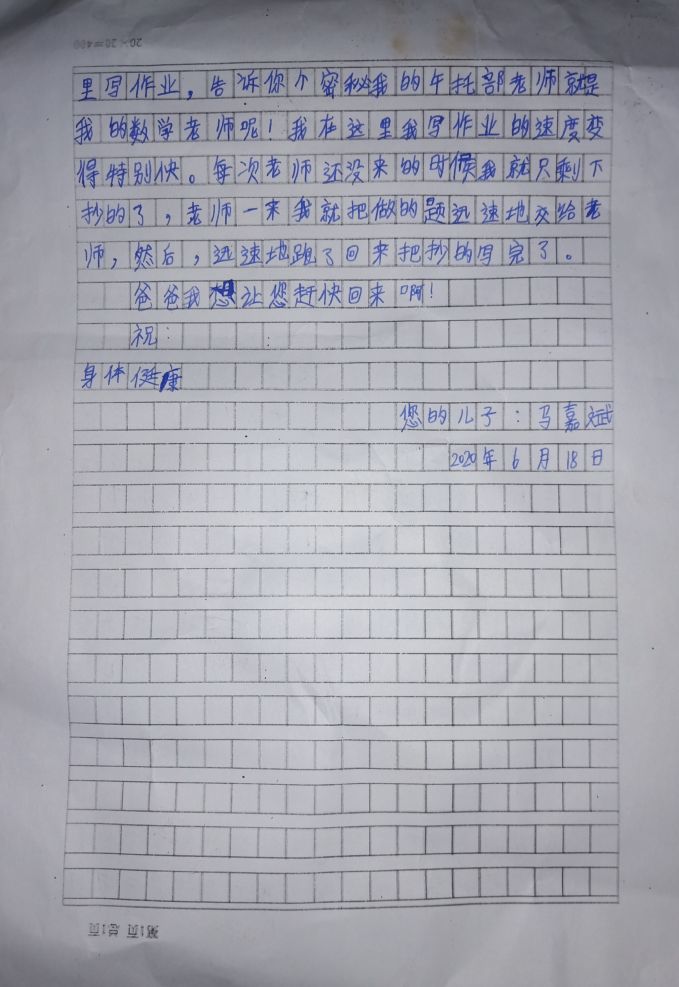 20×20=400
里写作业，告诉你个密秘我的午托部老师就是
我的数学老师呢！我在这里我写作业的速度变
得特别快。每次老师还没来的时候我就只剩下
抄的了，老师一来我就把做的题迅速地交给老
师，然后，迅速地跑了回来把抄的写完了。
爸爸我想让您赶快回来啊！
祝：
身体健康
您的儿子：马嘉斌
2020年6月18日
第1页 总1页